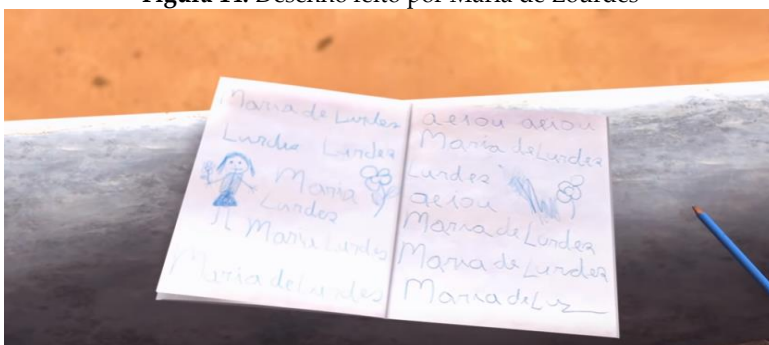 Figura 11. Desenho feito por Maria de Lourdes
Maria de Lurdes
Lurdes Lurdes
Maria
Lurdes
Maria Lurdes
Maria de Lurdes
aeiou aeiou
Maria de Lurdes
Lurdes
aeiou
Maria de Lurdes
Maria de Lurdes
Maria de Lu